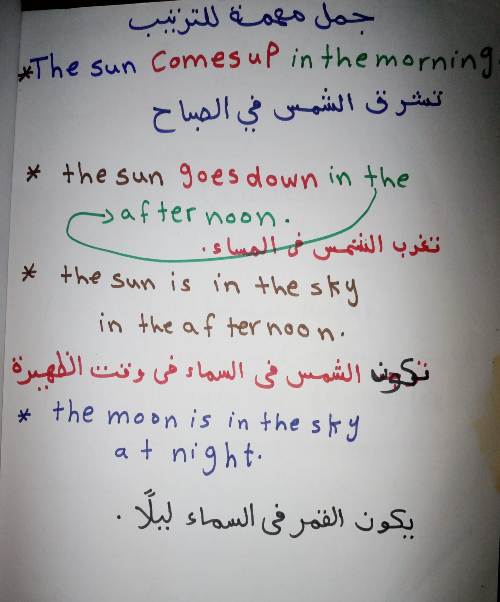 جمل مهمة للترتيب
*The sun Comes up in the morning.
تشرق الشمس في الصباح
* the sun goes down in the
afternoon.
تغرب الشمس فى المساء.
* the sun is in the sky
in the afternoon.
تكون الشمس فى السماء فى وقت الظهيرة
* the moon is in the sky
at night.
يكون القمر فى السماء ليلًا .